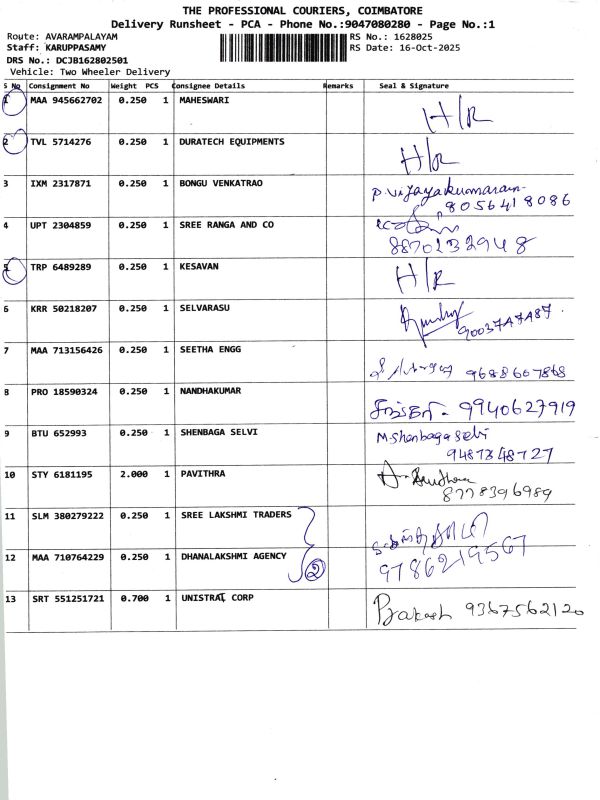 THE PROFESSIONAL COURIERS, COIMBATORE
Delivery Runsheet - PCA - Phone No.:9047080280 - Page No.:1
Route: AVARAMPALAYAM RS No.: 1628025
Staff: KARUPPASAMY RS Date: 16-Oct-2025
DRS No.: DCJB162802501
Vehicle: Two Wheeler Delivery
S No Consignment No Weight PCS Consignee Details Remarks Seal & Signature
1 MAA 945662702 0.250 1 MAHESWARI H/R
2 TVL 5714276 0.250 1 DURATECH EQUIPMENTS H/R
3 IXM 2317871 0.250 1 BONGU VENKATRAO P. Vijayakumaran
8056418086
4 UPT 2304859 0.250 1 SREE RANGA AND CO
8870232948
5 TRP 6489289 0.250 1 KESAVAN H/R
6 KRR 50218207 0.250 1 SELVARASU
7 MAA 713156426 0.250 1 SEETHA ENGG 9688607868
8 PRO 18590324 0.250 1 NANDHAKUMAR 9940627919
9 BTU 652993 0.250 1 SHENBAGA SELVI M. Shenbaga Selvi
9487348727
10 STY 6181195 2.000 1 PAVITHRA
8778396989
11 SLM 380279222 0.250 1 SREE LAKSHMI TRADERS
12 MAA 710764229 0.250 1 DHANALAKSHMI AGENCY 2 9786219567
13 SRT 551251721 0.700 1 UNISTRAL CORP Prakash 9367562120